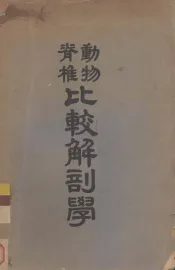 脊椎動物
比較解剖學